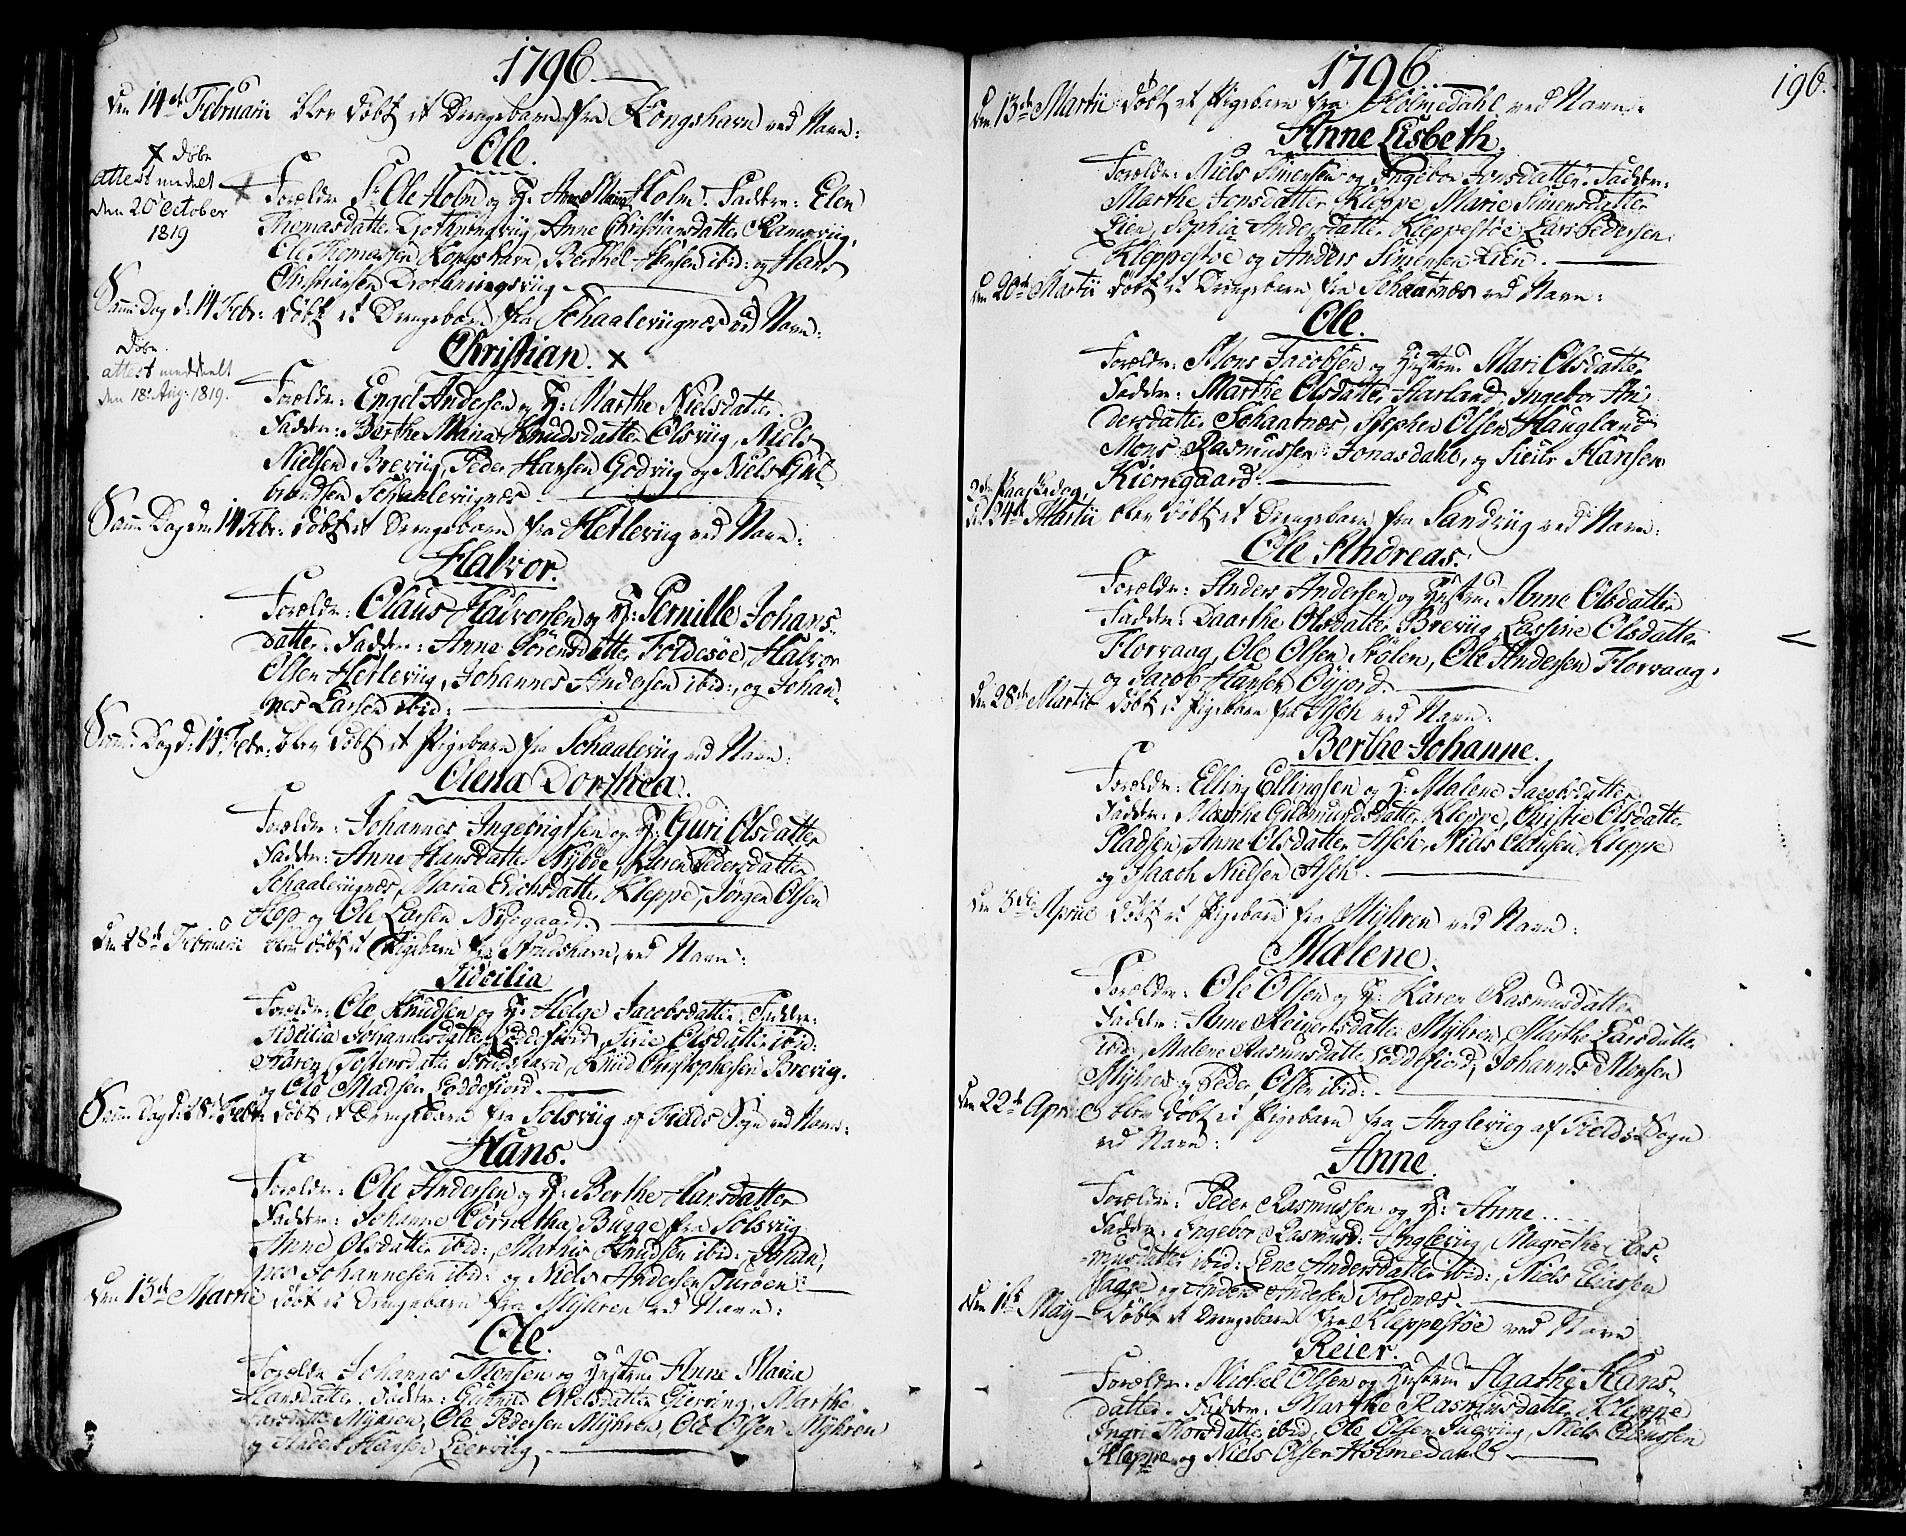 1796.
Den 14de Februarii blev døbt et Drengebarn fra Kongshavn ved Navn:
Ole.
x Døbe
attest meddeelt
den 20 October
1819
Forældre Sr. Ole Holm og H: Anne Maria Holm. Faddere: Elen
Thomasdatter Drotningviig, Anne Christiansdatter Ramsviig,
Ole Thomassen Kongshavn Berthel Hansen ibid: og Hans
Christiansen Drotningsviig
Samme Dag d: 14 Febr: døbt et Drengebarn fra Schaaleviignæs ved Navn:
Christian. x
Døbe
attest meddeelt
den 18 Aug: 1819.
Forældre: Engel Andersen og H: Marthe Nielsdatter.
Faddere: Berthe Maria Knudsdatter Olsviig, Niels
Nielsen Breviig, Peder Hansen Godviig og Niels Gul-
brandsen Schaaleviignæs
Samme Dag den 14 Febr: døbt et Drengebarn fra Hetleviig ved Navn:
Halvor.
Forældre: Claus Halvorsen og H: Pernille Johans-
datter. Faddere: Anne Sørensdatter Foldesøe, Halvor
Olsen Hetleviig, Johannes Andersen ibid:, og Johan-
nes Larsen ibid:
Samme Dag d: 14 Febr: blev døbt et Pigebarn fra Schaaleviig ved Navn:
Olena Dorthea.
Forældre: Johannes Ingebrigtsen og H: Guri Olsdatter
Faddere: Anne Hansdatter Nybøe, Karen Pedersdatter
Schaaleviignæs, Maria Erichsdatter Kleppe, Jørgen Olsen
Hop og Ole Larsen Nygaard.
Den 28de Februarii blev døbt et Pigebarn fra Strudshavn, ved Navn:
Sidcilia
Forældre: Ole Knudsen og H: Helge Jacobsdatter. Faddere:
Sidcilia Johannesdatter Loddefiord, Sirie Olsdatter ibid:
Karen Tostensdatter Strudshavn, Knud Christophersen Brevig.
og Ole Madsen Loddefiord.
Samme Dag d: 28 Febr: døbt et Drengebarn fra Solsviig af Fields Sogn ved Navn:
Hans.
Forældre: Ole Andersen og H: Berthe Hansdatter
Faddere: Johanne Cornetha Bugge fra Solsviig
Anne Olsdatter ibid:, Mathis Knudsen ibid: Johan,
nes Johannesen ibid: og Niels Andersen Turøen
Den 13de Martii døbt et Drengebarn fra Myhren ved Navn:
Ole.
Forældre Johannes Monsen og Hustrue Anne Maria
Hansdatter. Faddere: Gunnild Nielsdatter Gierving, Marthe
Larsdatter Myhren, Ole Pedersen Myhren, Ole Olsen Myhren
og Anders Hansen Leerviig.
1796.
196.
Den 13de Martii døbt et Pigebarn fra Holmedahl ved Navn:
Anne Lisbeth.
Forældre: Niels Simensen og Ingebor Jonsdatter. Faddere:
Marthe Jonsdatter Kleppe, Marie Simensdatter
Lien, Sophia Andersdatter Kleppestøe, Lars Pedersen
Kleppestøe og Anders Simensen Lien.
Den 20de Martii døbt et Drengebarn fra Schaatnæs ved Navn:
Ole.
Forældre: Mons Jacobsen og Hustrue Mari Olsdatter
Faddere: Marthe Olsdatter Harland, Ingebor An-
dersdatter Schaatnæs, Stephen Olsen Haugland
Mons Rasmussen Jonasdahl, og Siur Hansen
Kiernegaard.
2den Paaskedag,
d: 24de Martii blev døbt et Drengebarn fra Sandviig ved Navn:
Ole Andreas.
Forældre: Anders Andersen og Hustrue Anne Olsdatter
Faddere: Daarthe Olsdatter Breviig, Laspine Olsdatter
Florvaag, Ole Olsen Stølen, Ole Andersen Florvaag,
og Jacob Hansen Øyjord.
Den 28de Martii døbt et Pigebarn fra Asch ved Navn:
Berthe Johanne.
Forældre: Elling Ellingsen og H: Malene Jacobsdatter
Faddere: Marthe Gudmundsdatter Kleppe, Christie Olsdatter
Pladsen, Anne Olsdatter Asch, Niels Clausen Kleppe
og Isaach Nielsen Asch.
Den 3die Aprile døbt et Pigebarn fra Myhren ved Navn:
Malene.
Forældre: Ole Olsen og H: Karen Rasmusdatter
Faddere: Anne Reigertsdatter Myhren, Marthe Larsdatter
ibid:, Malene Rasmusdatter Loddefiord, Johannes Monsen
Myhren og Peder Olsen ibid:.
Den 22de Aprile blev døbt et Pigebarn fra Angleviig af Fields Sogn
ved Navn:
Anne.
Forældre: Peder Rasmussen og H: Anne....
Faddere: Ingebor Rasmusd: Angleviig, Magrethe Ras-
musdatter ibid: Lene Andersdatter ibid:, Niels Eliassen
Haage og Anders Andersen Foldnæs.
Den 1ste May – døbt et Drengebarn fra Kleppestøe ved Navn
Reier.
Forældre: Michel Olsen og Hustrue Agathe Hans-
datter. Faddere: Marthe Rasmusdatter Kleppe
Ingri Thorsdatter ibid, Ole Olsen Juelviig, Niels Clausen
Kleppe og Niels Olsen Holmedahl